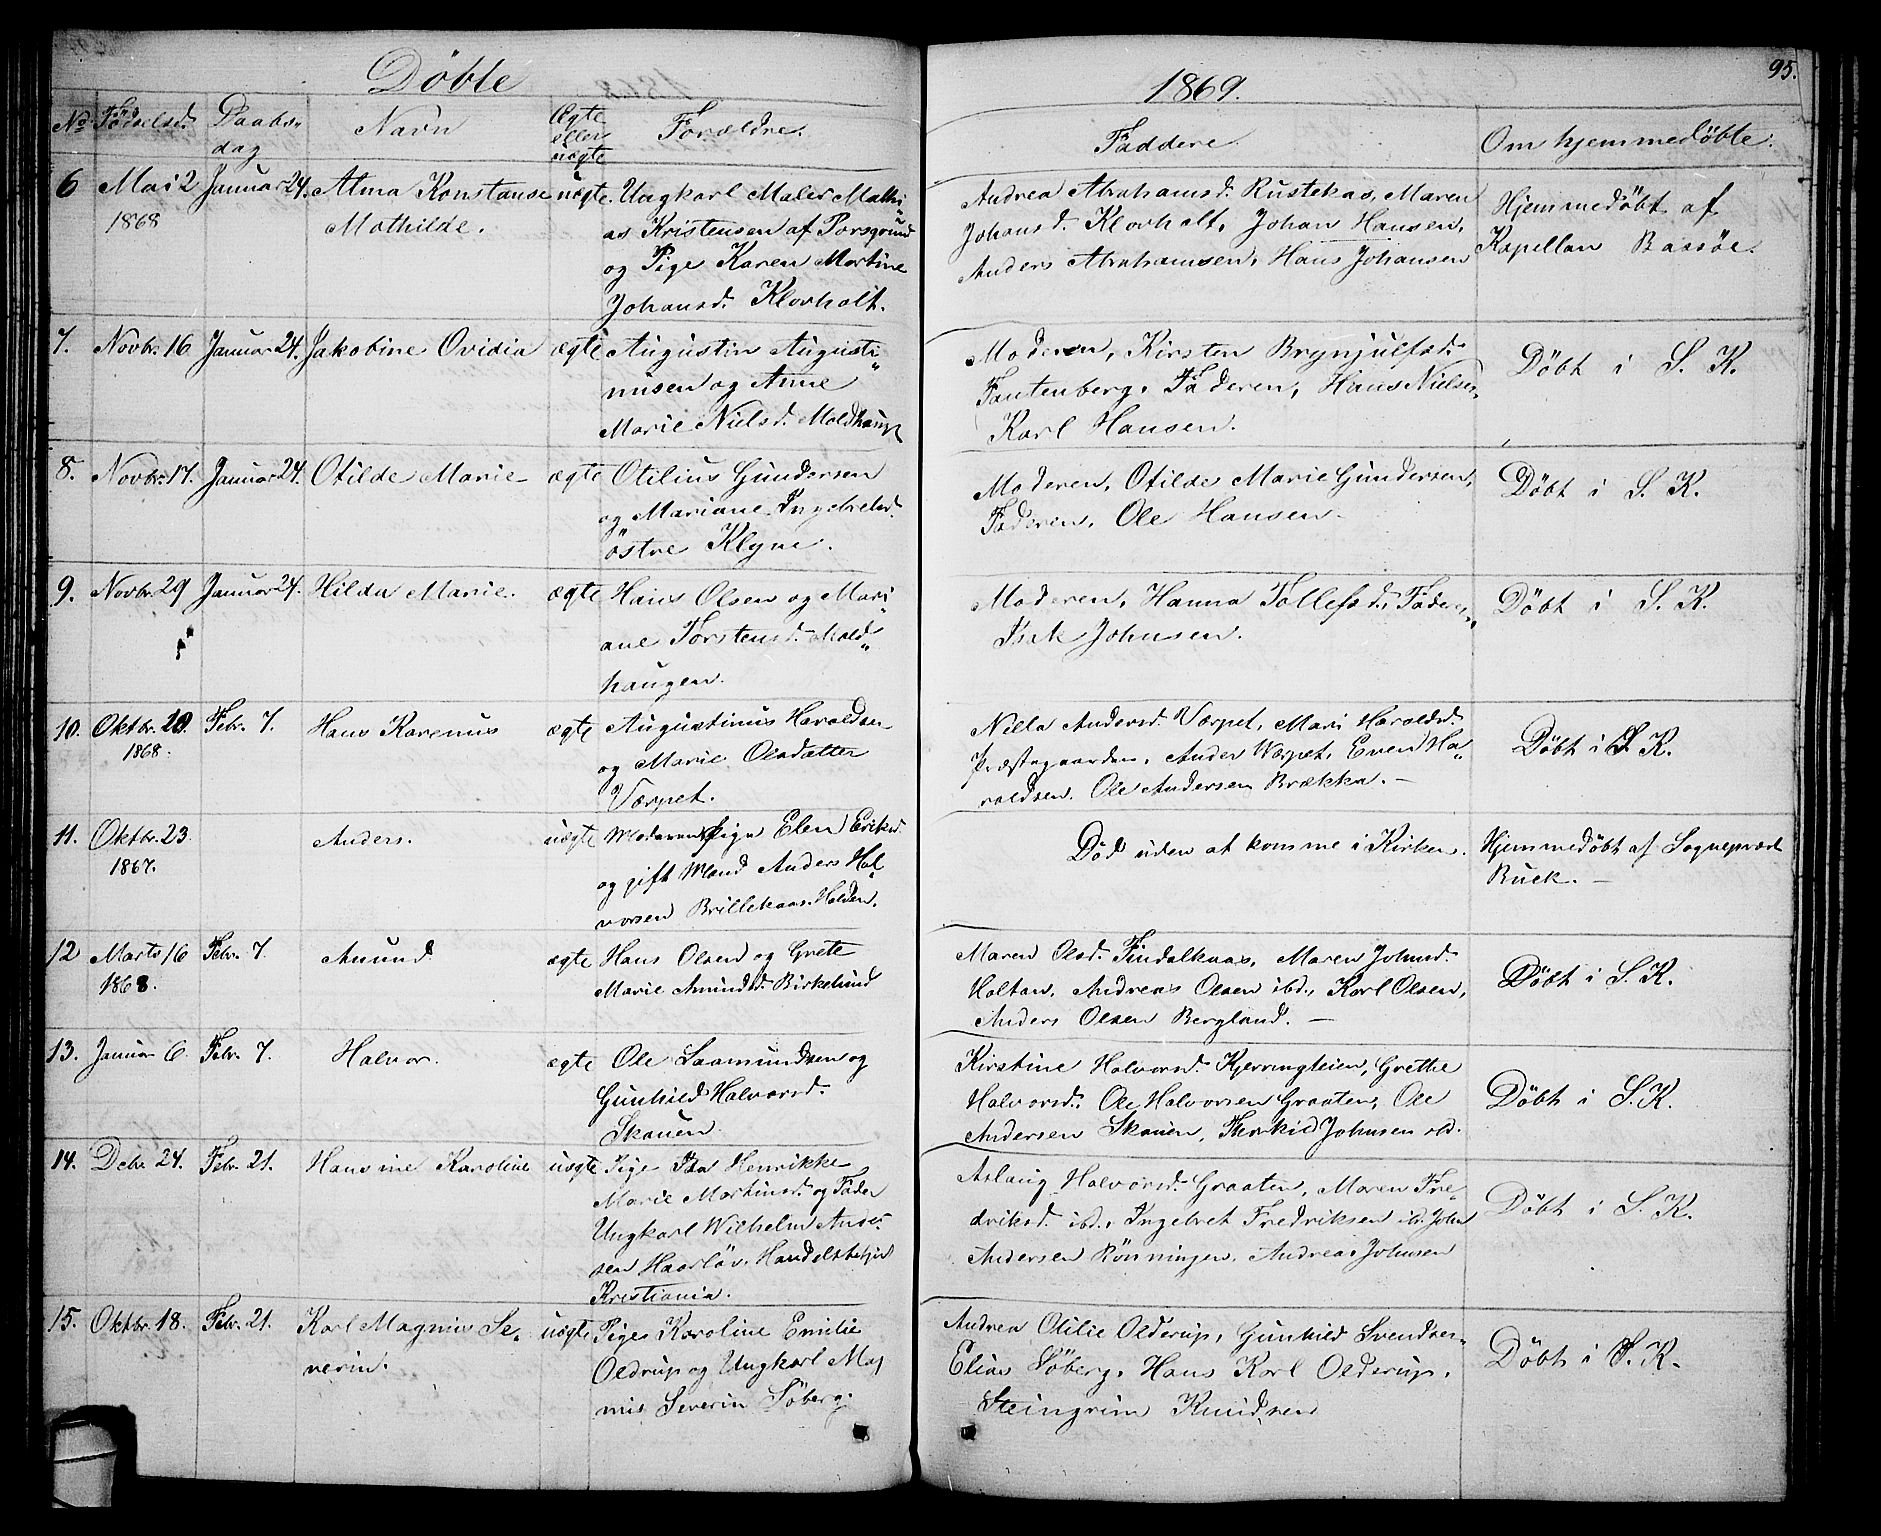 Döbte
1869.
95.
No Fødselsd. Daabsdag Navn Ægte eller uægte Forældre. Faddere. Om hjemmedöbte.
6 Mai 2 Januar 24. Alma Konstanse uægte. Ungkarl Maler Mathi„
1868 Mathilde. as Kristensen af Porsgrund
og Pige Karen Martine
Johansd. Klovholt.
Andrea Abrahamsd. Rustekas, Maren
Johansd. Klovholt, Johan Hansen,
Anders Abrahamsen, Hans Johansen
Hjemmedöbt af
Kapellan Bassöe.
7. Novbr. 16 Januar 24. Jakobine Ovidia ægte Augustin Augusti„
nusen og Anne
Marie Nielsd. Moldhaug
Moderen, Kirsten Brynjulfsd.
Fantenberg, Faderen, Hans Nielsen
Karl Hansen.
Döbt i S. K.
8. Novbr. 17. Januar 24. Otilde Marie ægte Otilius Gundersen
og Mariane Ingebretsd.
östre Klyve.
Moderen, Otilde Marie Gundersen,
Faderen, Ole Hansen.
Döbt i S. K.
9. Novbr. 29 Januar 24. Hilda Marie. ægte Hans Olsen og Mari„
ane Torstensd. Mold„
haugen.
Moderen, Hanna Tollefsd., Fader„
Isak Johnsen.
Döbt i S. K.
10. Oktbr. 20. Febr. 7. Hans Karenus ægte Augustinus Haroldsen
1868. og Marie Olsdatter
Værpet.
Nilla Andersd. Værpet, Mari Haroldsd.
Præstegaarden, Anders Værpet, Even Ha„
roldsen. Ole Andersen Brækka. —
Döbt i S. K.
11. Oktbr. 23. Anders. uægte Moderen Pige Elen Eriksd.
1867. og gift Mand Anders Hal„
vorsen Brillekaas. Holden.
Död uden at komme i Kirken.
Hjemmedöbt af Sognepræst
Buck. —
12 Marts 16 Febr. 7. Amund ægte Hans Olsen og Grete
1868. Marie Amundsd. Birkelund
Maren Olsd. Findalkaas, Maren Johnsd.
Holtan, Andreas Olsen ibd., Karl Olsen,
Anders Olsen Bergland. —
Döbt i S. K.
13. Januar 6. Febr. 7. Halvor. ægte Ole Saamundsen og
Gunhild Halvorsd.
Skauen.
Kirstine Halvorsd. Kjerringteien, Grethe
Halvorsd., Ole Halvorsen Graaten, Ole
Andersen Skauen, Johnsen
Döbt i S. K.
14. Debr. 24. Febr. 21. Hansine Karoline uægte Pige Ida Henrikke
Marie Martinsd. og Fader
Ungkarl Wilhelm Ander„
sen Haarløv. Handelsbetjent
Kristiania.
Aslaug Halvorsd. Graaten, Maren Fre„
driksd. ibd., Ingebret Fredriksen ibd. John
Andersen Rönningen, Andreas Johnsen
Döbt i S. K.
15. Oktbr. 18. Febr. 21. Karl Magnus Se„ uægte Pige Karoline Emilie
verin. Oldrup og Ungkarl Mag
nus Severin Söberg.
Andrea Otilie Olderup, Gunhild Svendsen
Elias Söberg, Hans Karl Olderup,
Steingrim Knudsen
Döbt i S. K.